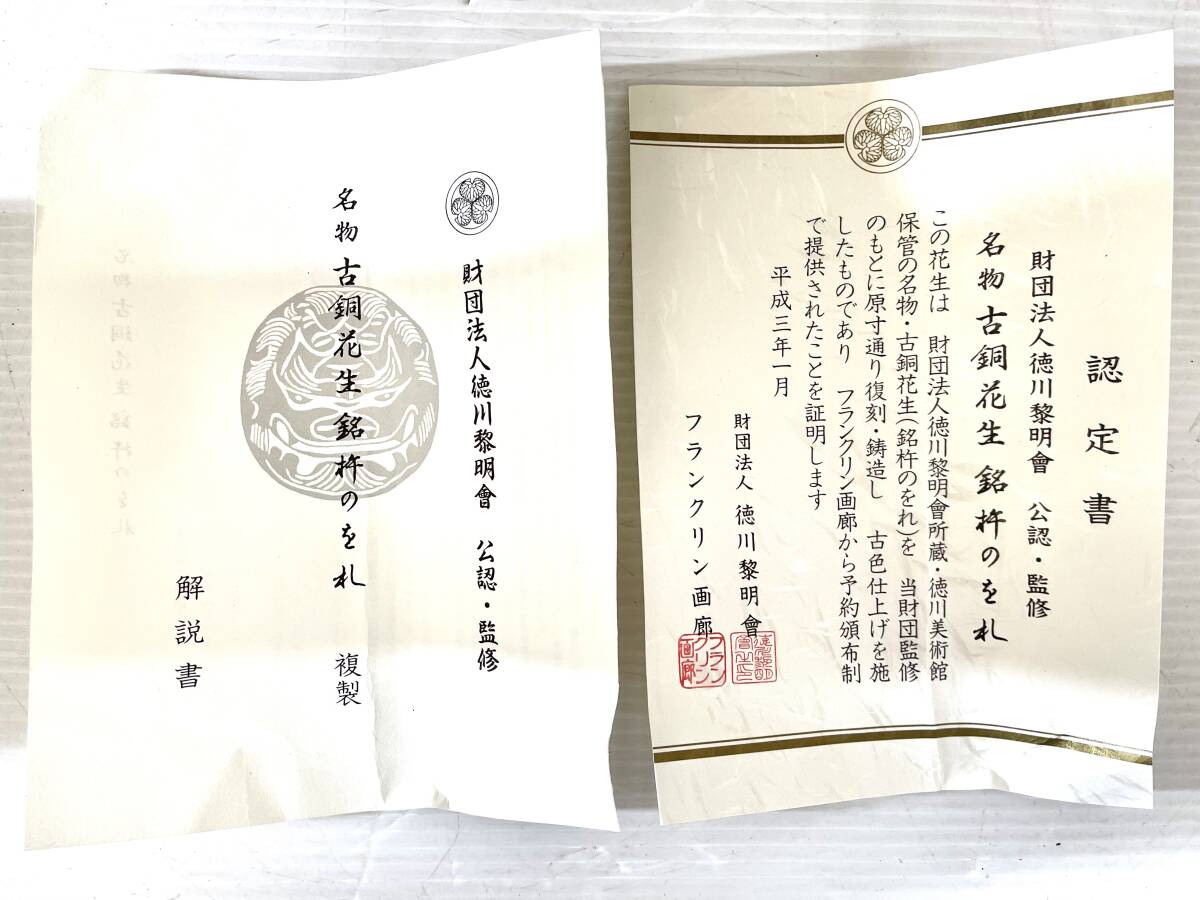 財団法人徳川黎明會 公認・監修
名物 古銅花生 銘 杵のを礼 複製
解説書
認定書
財団法人徳川黎明會 公認・監修
名物 古銅花生 銘 杵のを礼
この花生は 財団法人徳川黎明會所蔵・徳川美術館
保管の名物・古銅花生(銘杵のをれ)を 当財団監修
のもとに原寸通り復刻・鋳造し 古色仕上げを施
したものであり フランクリン画廊から予約頒布制
で提供されたことを証明します
平成三年一月
財団法人 徳川黎明會
フランクリン画廊
フランクリン画廊